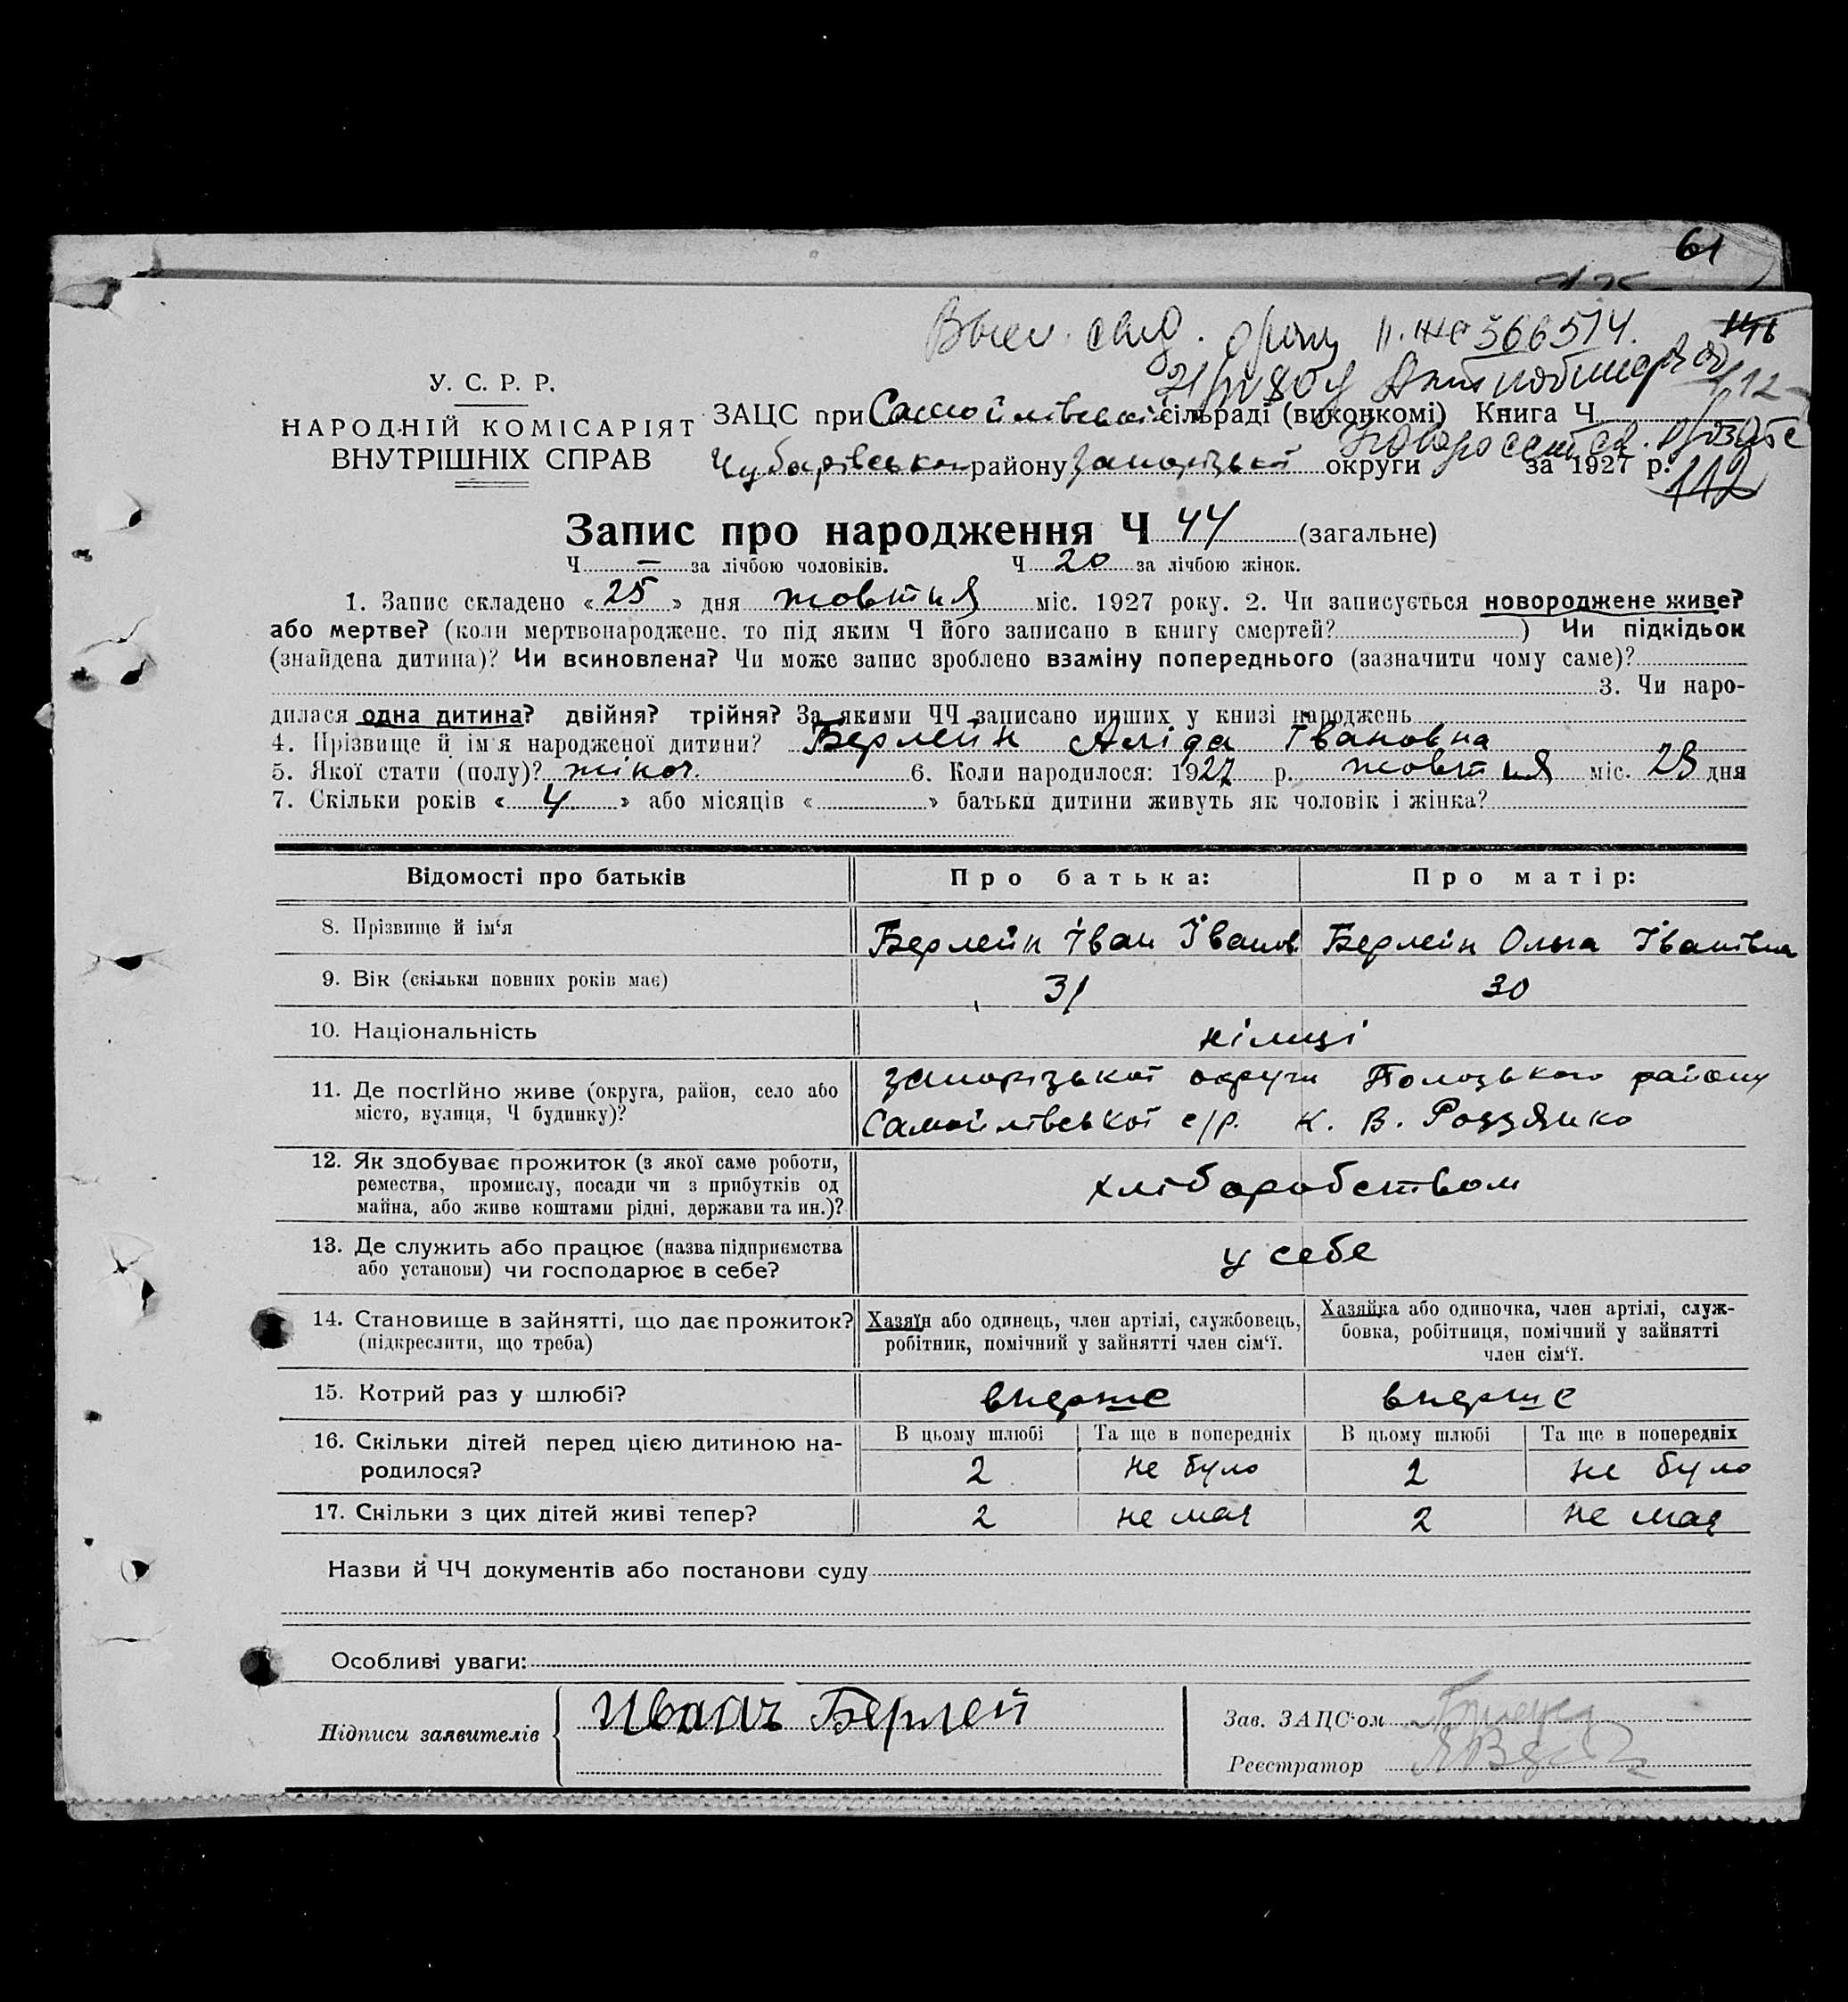 61
Выг. свид. 566514.
У. С. Р. Р.
НАРОДНІЙ КОМІСАРІЯТ
ВНУТРІШНІХ СПРАВ
ЗАЦС при Самойлівській сільраді (виконкомі) Книга Ч
Чубарівського району Запорізької округи за 1927 р.
112
Запис про народження Ч 44 (загальне)
Ч — за лічбою чоловіків. Ч 20 за лічбою жінок.
1. Запис складено «25» дня жовтня міс. 1927 року. 2. Чи записується новороджене живе?
або мертве? (коли мертвонароджене, то під яким Ч його записано в книгу смертей?) Чи підкідьок
(знайдена дитина)? Чи всиновлена? Чи може запис зроблено взаміну попереднього (зазначити чому саме)?
3. Чи наро-
дилася одна дитина? двійня? трійня? За якими ЧЧ записано инших у книзі народжень
4. Прізвище й ім'я народженої дитини? Берлейн Аліда Івановна
5. Якої стати (полу)? жіноч. 6. Коли народилося: 1927 р. жовтня міс. дня
7. Скільки років «4» або місяців « » батьки дитини живуть як чоловік і жінка?
Відомості про батьків
Про батька:
Про матір:
8. Прізвище й ім'я
Берлейн Іван Іванов
Берлейн Ольга Іванівна
9. Вік (скільки повних років має)
31
30
10. Національність
німці
11. Де постІйно живе (округа, район, село або
місто, вулиця, Ч будинку)?
Запорізької округи Пологського району
Самойлівської с/р. к. В. Родзянко
12. Як здобуває прожиток (з якої саме роботи,
ремества, промислу, посади чи з прибутків од
майна, або живе коштами рідні, держави та ин.)?
хліборобством
13. Де служить або працює (назва підприємства
або установи) чи господарює в себе?
у себе
14. Становище в зайнятті, що дає прожиток?
(підкреслити, що треба)
Хазяїн або одинець, член артілі, службовець,
робітник, помічний у зайнятті член сім'ї.
Хазяйка або одиночка, член артілі, служ-
бовка, робітниця, помічний у зайнятті
член сім'ї.
15. Котрий раз у шлюбі?
вперше
вперше
16. Скільки дітей перед цією дитиною на-
родилося?
В цьому шлюбі
Та ще в попередніх
В цьому шлюбі
Та ще в попередніх
2
не було
2
не було
17. Скільки з цих дітей живі тепер?
2
не мая
2
не мая
Назви й ЧЧ документів або постанови суду
Особливі уваги:
Підписи заявителів
Иванъ Берлей
Зав. ЗАЦС'ом
Реєстратор